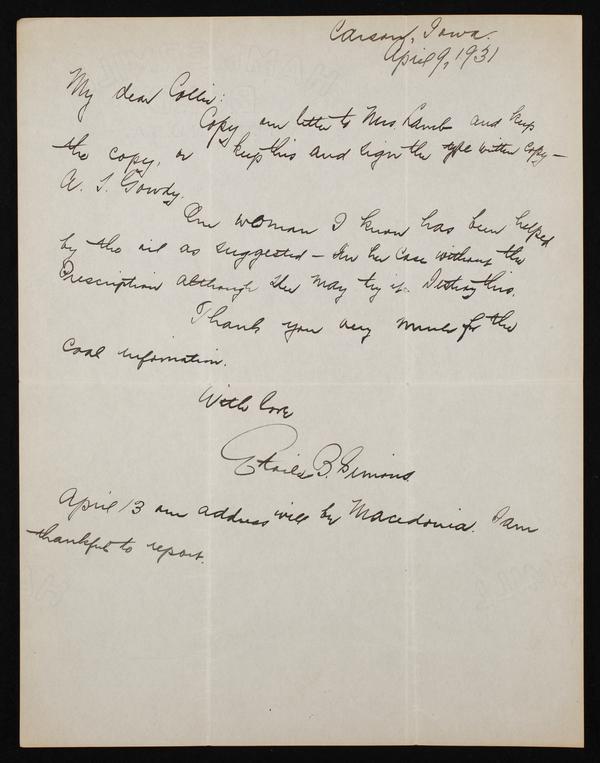 Carson, Iowa.
April 9, 1931
My dear Collier:
Copy our letter to Mrs. Lamb and keep
the copy, or keep this and sign the type written copy —
A. S. Gowdy.
One woman I know has been helped
by the oil as suggested — in her case without the
Prescription although she may try it. Destroy this.
Thank you very much for the
coal information.
With love
B. Simons
April 13 our address will be Macedonia. I am
thankful to report.